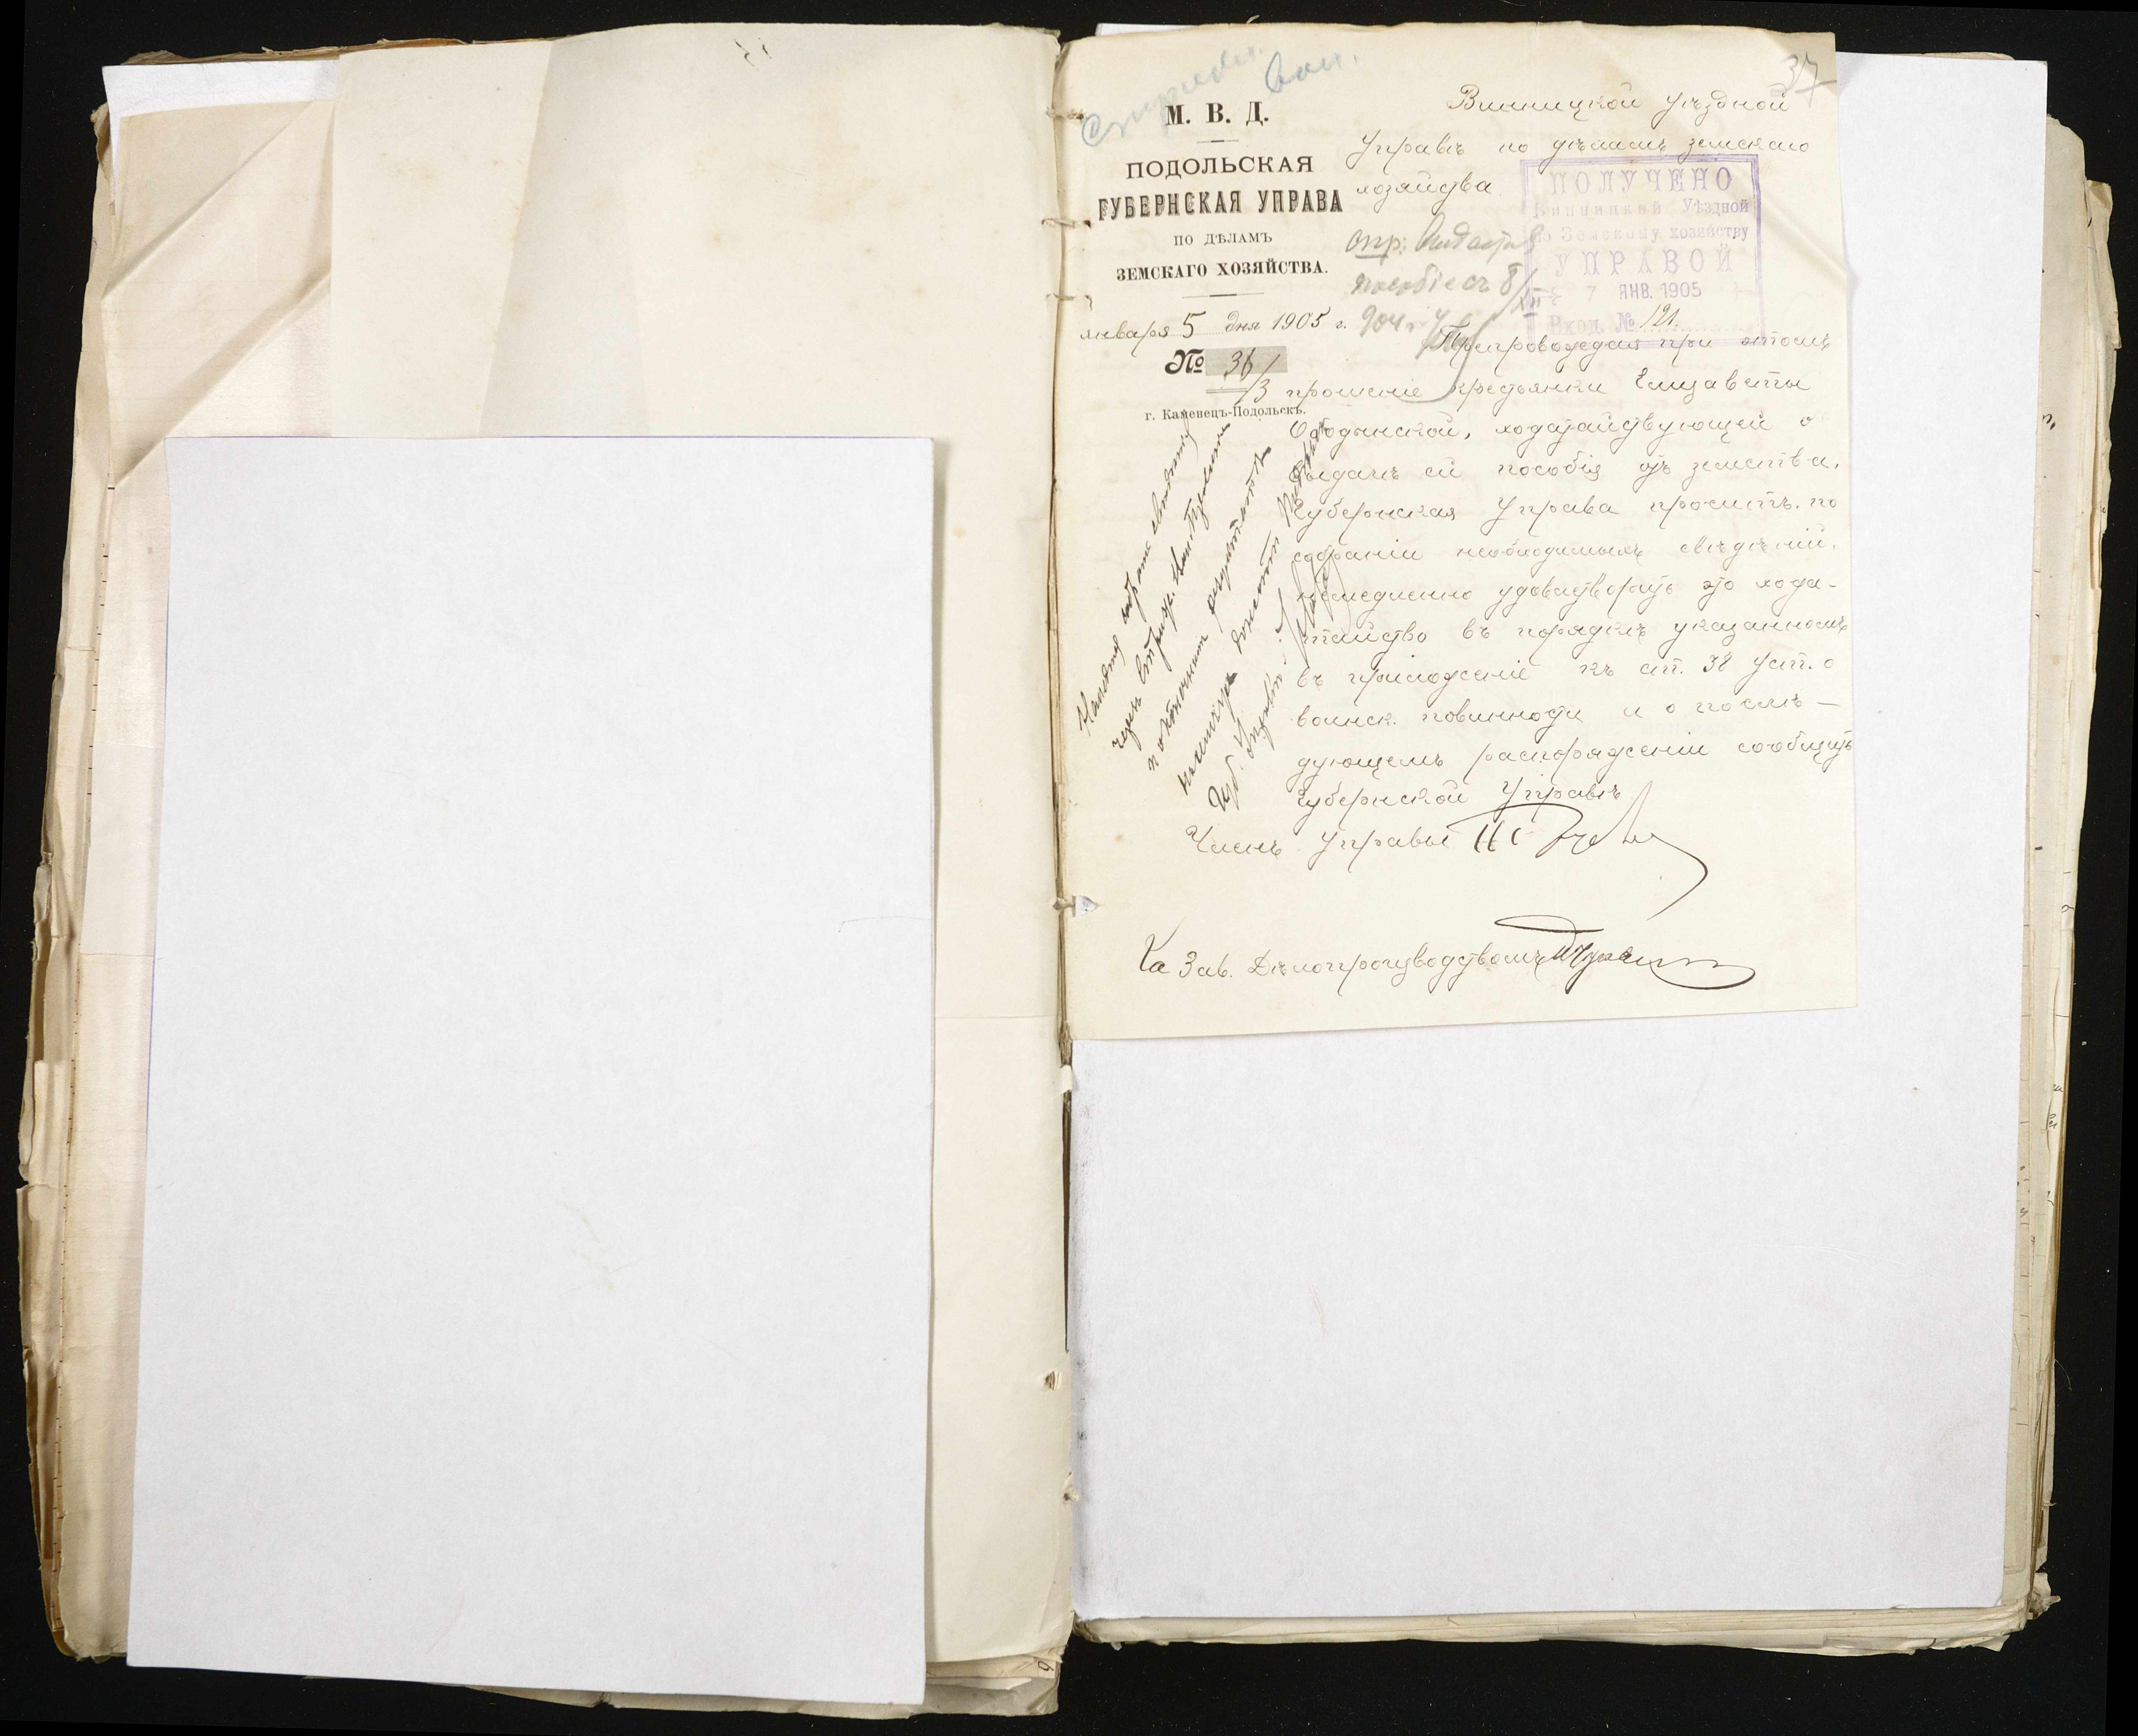 37
М. В. Д.
ПОДОЛЬСКАЯ
ГУБЕРНСКАЯ УПРАВА
ПО ДѢЛАМЪ
ЗЕМСКАГО ХОЗЯЙСТВА.
января 5 дня 1905 г.
№ 36/3
г. Каменецъ-Подольскъ.
Винницкой уѣздной
Управѣ по дѣламъ земскаго
хозяйства
ПОЛУЧЕНО
Винницкой Уѣздной
по Земскому хозяйству
УПРАВОЙ
7 ЯНВ. 1905
Вход. № 121.
пособіе съ 8/XII
904 г.
Препровождая при этомъ
прошеніе крестьянки Елизаветы
Ободынской, ходатайствующей о
выдачѣ ей пособія отъ земства,
Губернская Управа проситъ, по
собраніи необходимыхъ свѣдѣній,
немедленно удовлетворить это хода-
тайство въ порядкѣ указанномъ
въ приложеніе къ ст. 38 Уст. о
воинск. повинности и о послѣ-
дующемъ распоряженіи сообщить
Губернской Управѣ
Членъ Управы
За Зав. Дѣлопроизводствомъ